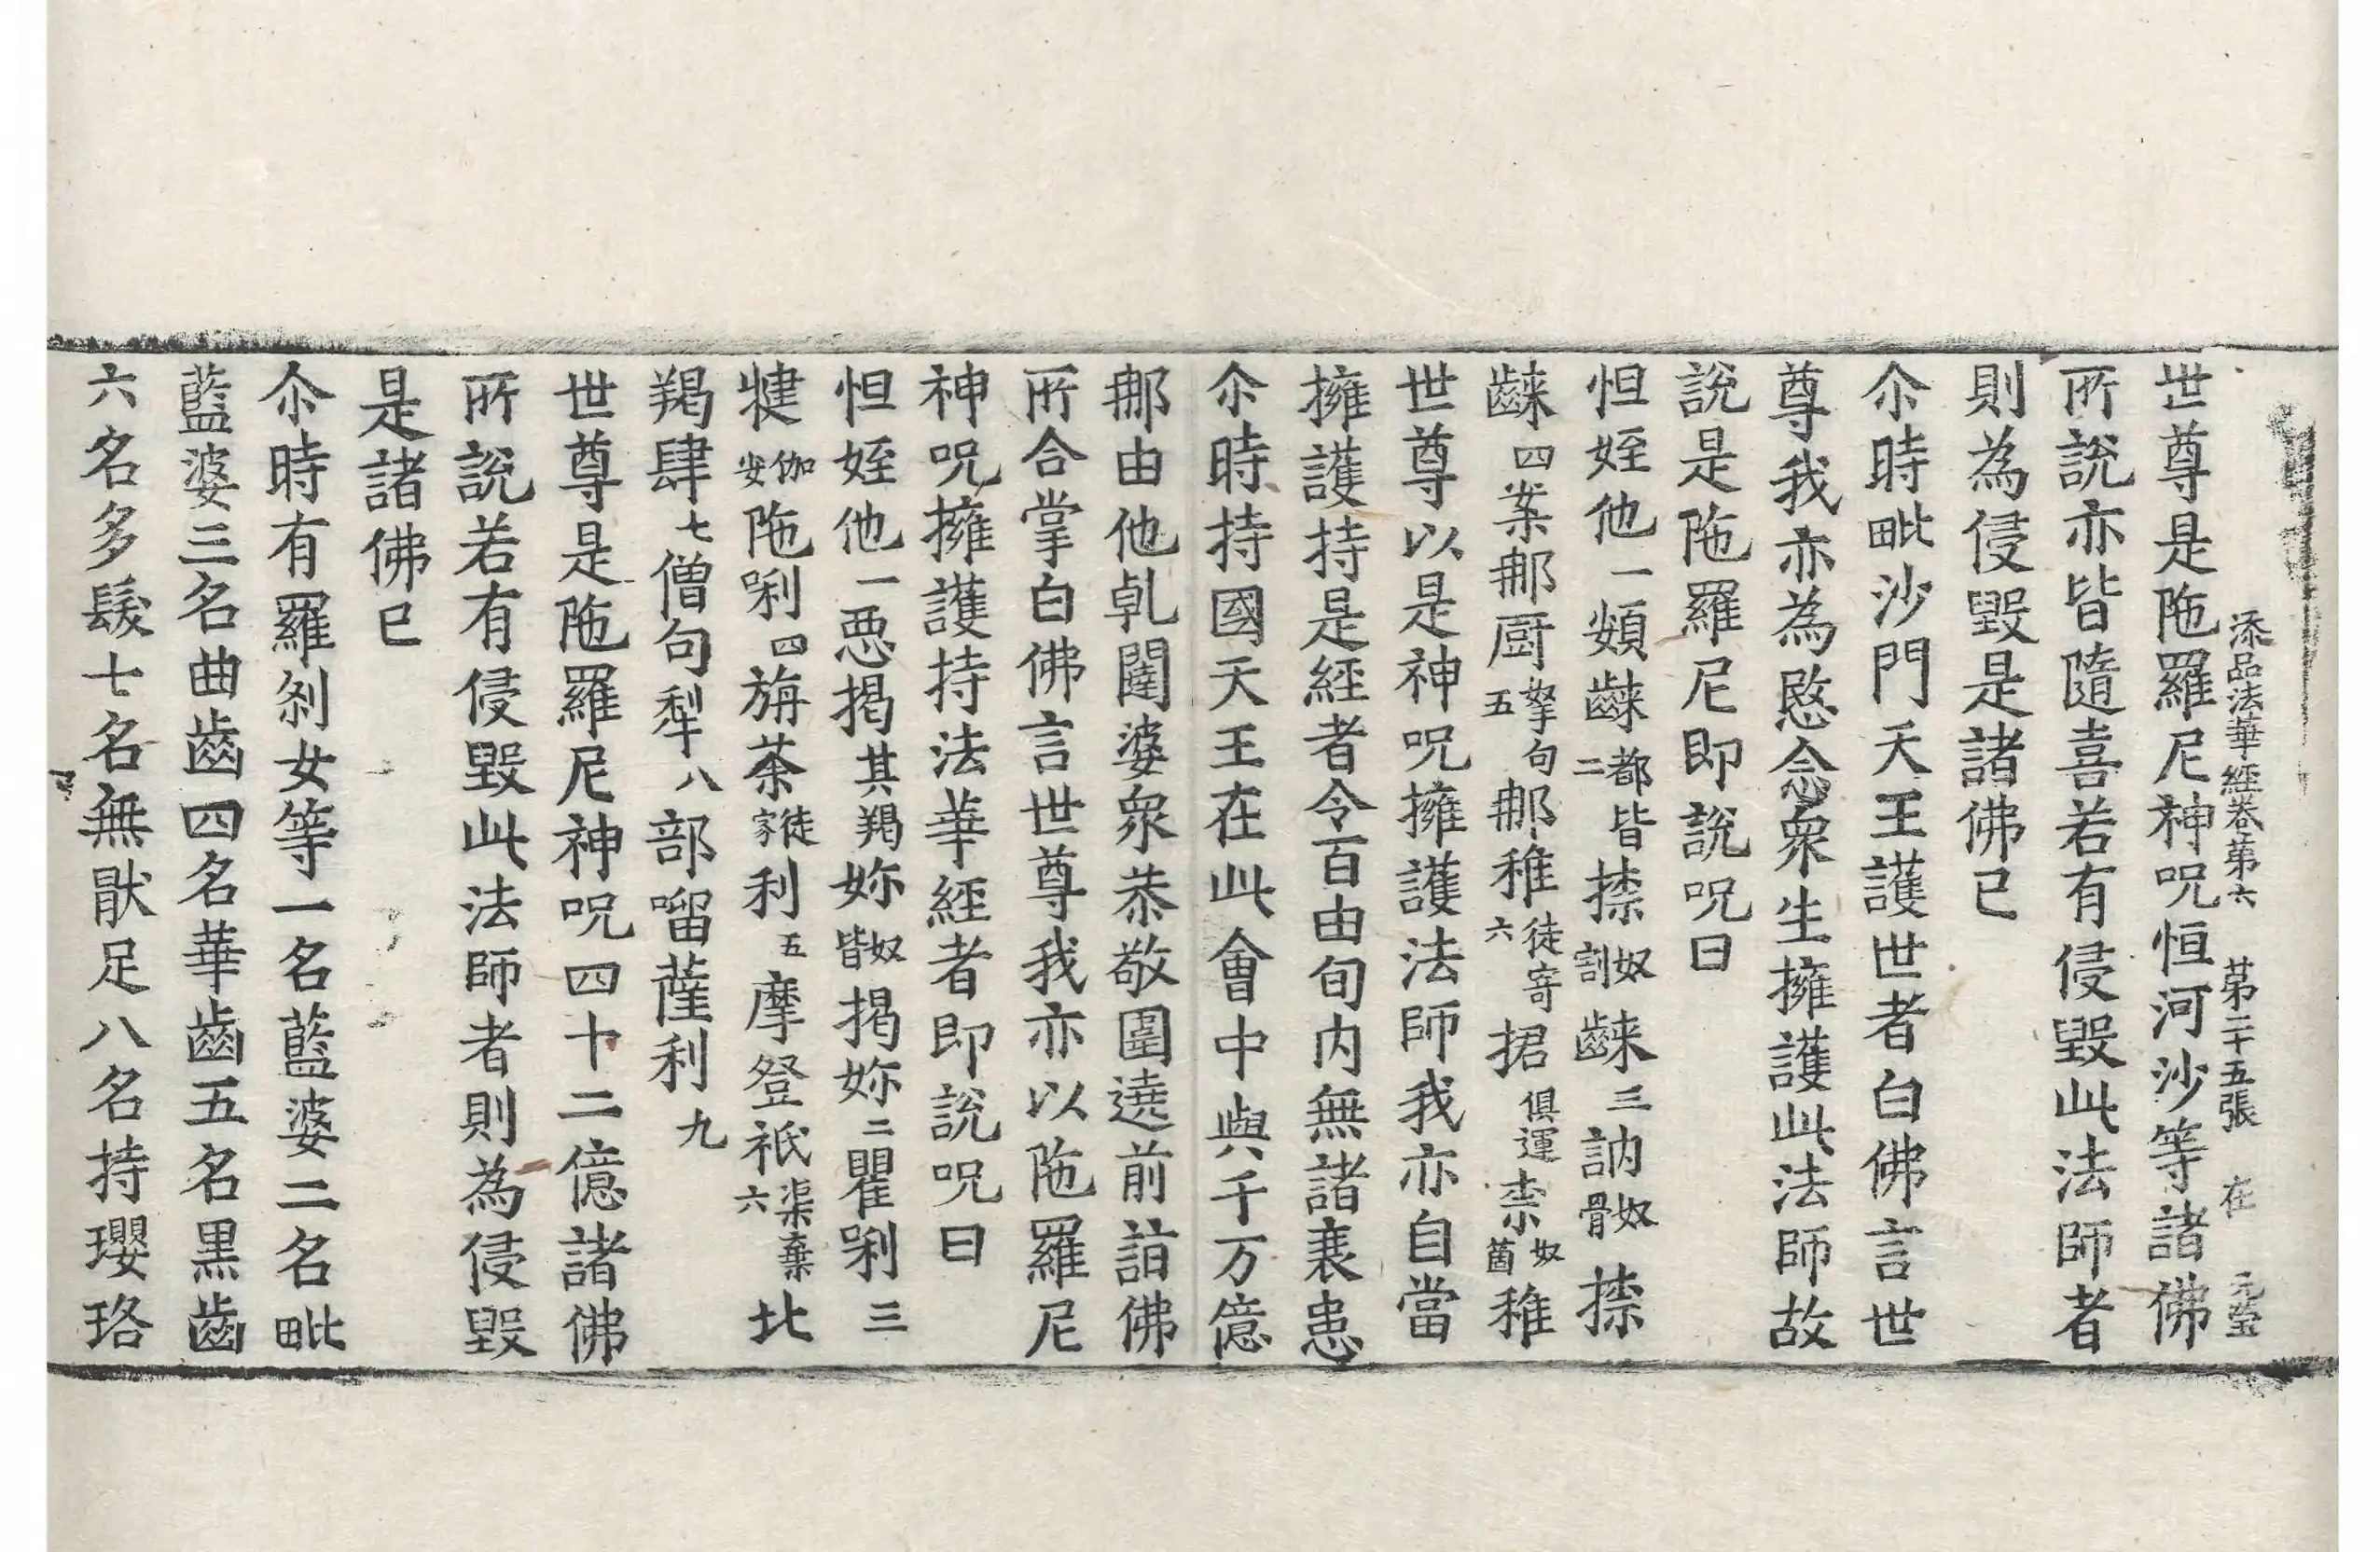 添品法華經卷第六 第二十五張 在 元瑩
世尊是陁羅尼神呪恒河沙等諸佛
所說亦皆隨喜若有侵毀此法師者
則為侵毀是諸佛已
尒時毗沙門天王護世者白佛言世
尊我亦為愍念衆生擁護此法師故
說是陁羅尼即說呪曰
怛姪他一頞䶫都皆二捺奴割䶫三訥奴骨捺
䶫四案那厨拏句五那稚徒寄六捃俱運柰奴箇稚
世尊以是神呪擁護法師我亦自當
擁護持是經者令百由旬内無諸衰患
尒時持國天王在此會中與千万億
那由他乹闥婆衆恭敬圍遶前詣佛
所合掌白佛言世尊我亦以陁羅尼
神呪擁護持法華經者即說呪曰
怛姪他一惡揭其羯妳奴皆揭妳二瞿唎三
揵伽安陁唎四旃荼徒家利五摩登祇渠棄六北
羯肆七僧句犁八部㗉薩利九
世尊是陁羅尼神呪四十二億諸佛
所說若有侵毀此法師者則為侵毀
是諸佛已
尒時有羅剎女等一名藍婆二名毗
藍婆三名曲齒四名華齒五名黒齒
六名多髮七名無猒足八名持瓔珞